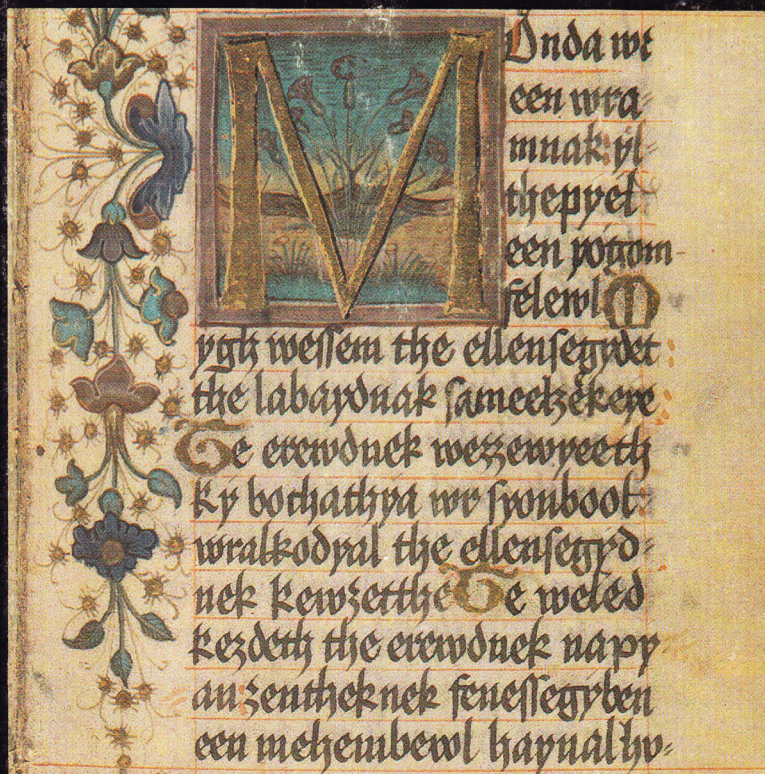 MOnda wr
een wra⸗
mnak yl⸗
thepyel
een yogom
felewl M
ygh wessem the ellensegydet
the labaydnak sameelzëkeye
Te erewdnek wezzewyeeth
ky bochathya wr syonbool
wralkodyal the ellensegyd⸗
nek kewzetthe Te weled
kezdeth the erewdnek napy⸗
an zentheknek fenessegyben
een mehembewl haynal hv⸗